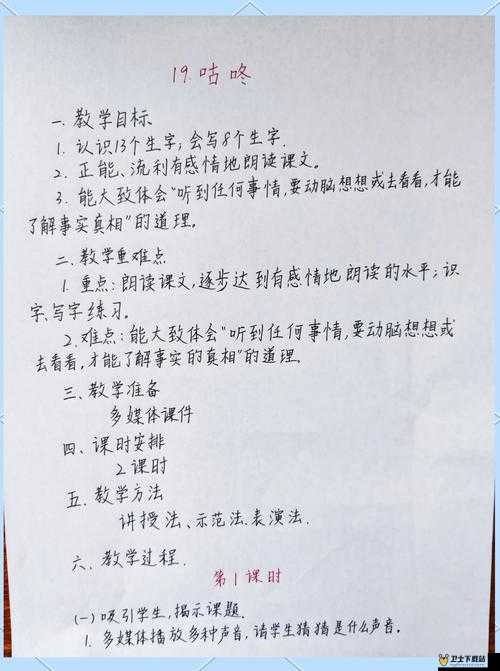 19.咕咚
一.教学目标
1. 认识13个生字,会写8个生字.
2. 正能、流利有感情地朗读课文。
3. 能大致体会“听到任何事情,要动脑想想或去看看,才能
了解事实真相”的道理。
二.教学重难点
1. 重点:朗读课文,逐步达到有感情地朗读的水平;识
字、写字练习。
2.难点:能大致体会“听到任何事情,要动脑想想或
去看看,才能了解事实的真相”的道理。
三、教学准备
多媒体课件
四、课时安排
2课时
五.教学方法
讲授法、示范法.表演法.
六、教学过程.
第1课时
(一)吸引学生,揭示课题.
1. 多媒体播放多种声音,请学生猜猜是什么声音。
卫士下载站